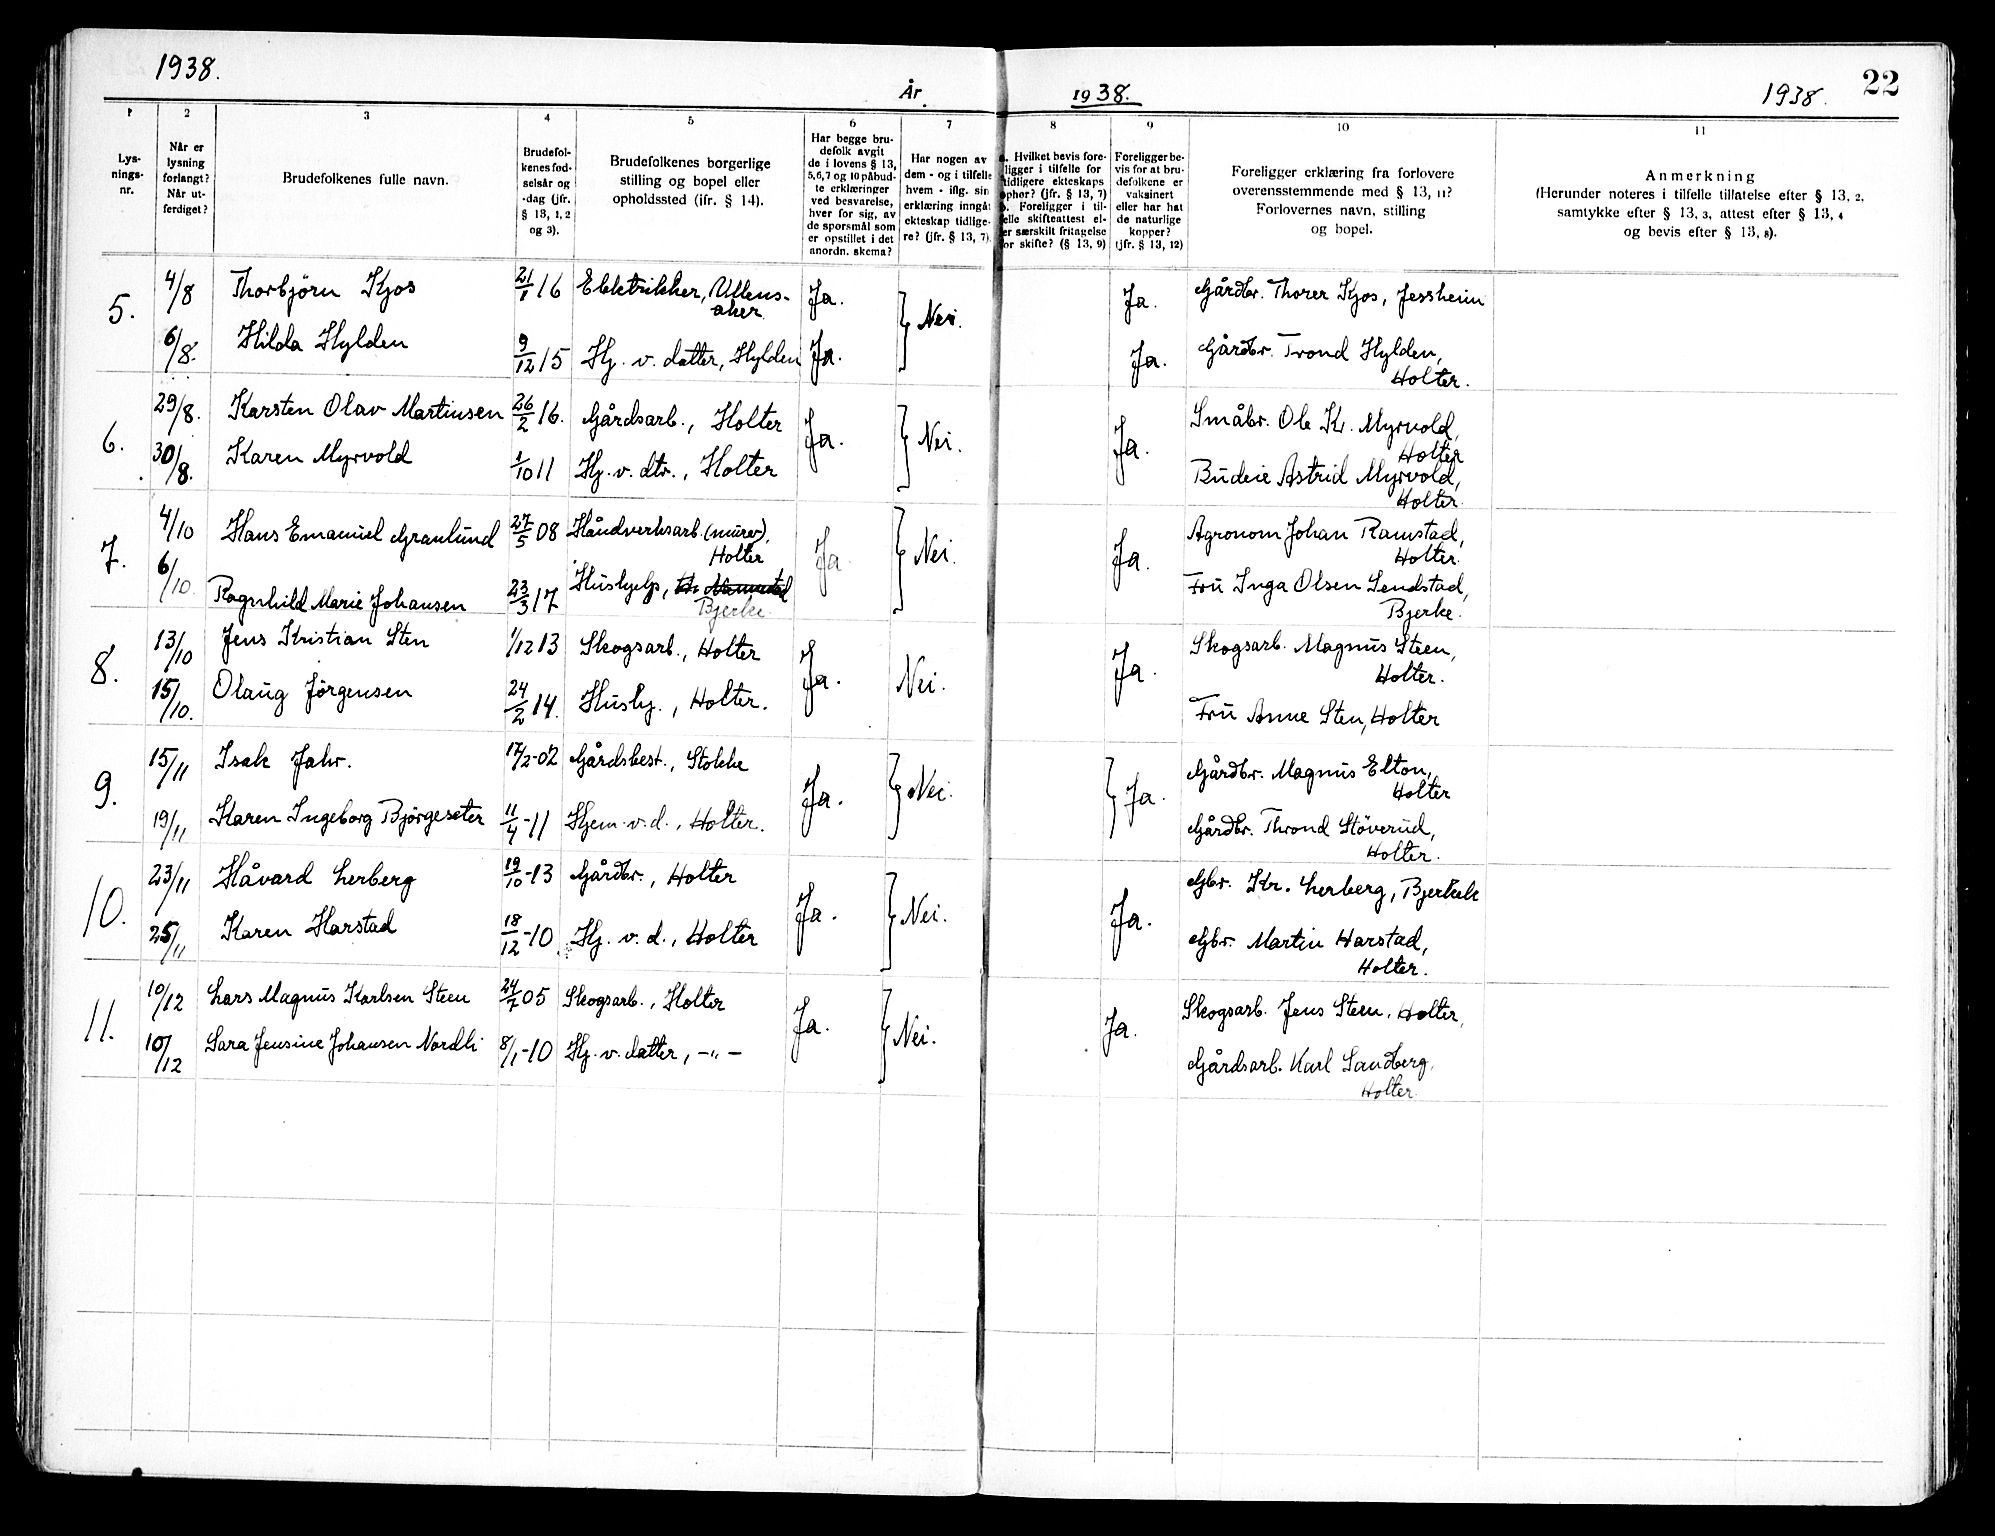 1938.
År 1938.
1938. 22
1 2 3 4 5 6 7 8 9 10 11
Lys-
nings-
nr.
Når er
lysning
forlangt?
Når ut-
ferdiget?
Brudefolkenes fulle navn.
Brudefol-
kenes fød-
selsår og
-dag (jfr.
§ 13, 1, 2
og 3).
Brudefolkenes borgerlige
stilling og bopel eller
opholdssted (ifr. § 14).
Har begge bru-
defolk avgit
de i lovens § 13,
5,6,7 og 10 påbud-
te erklæringer
ved besvarelse,
hver for sig, av
de spørsmål som
er opstillet i det
anordn. skema?
Har nogen av
dem - og i tilfelle
hvem - iflg. sin
erklæring inngåt
ekteskap tidlige-
re? (jfr. § 13, 7).
a. Hvilket bevis fore-
ligger i tilfelle for
tidligere ekteskaps
ophør? (jfr. § 13, 7)
b. Foreligger i til-
felle skifteattest el-
ler særskilt fritagelse
for skifte? (§ 13, 9)
Foreligger be-
vis for at bru-
defolkene er
vaksinert
eller har hat
de naturlige
kopper?
(jfr. § 13, 12)
Foreligger erklæring fra forlovere
overensstemmende med § 13, 11?
Forlovernes navn, stilling
og bopel.
Anmerkning
(Herunder noteres i tilfelle tillatelse efter § 13, 2,
samtykke efter § 13, 3, attest efter § 13, 4
og bevis efter § 13, 8).
5. 4/8 Thorbjörn Kjos 21/1 16 Elektriker, Ullens-
aker Ja. } Nei. Ja. Gårdbr. Thorer Kjos, Jessheim
6/8. Hilda Hylden 9/12 15 Hj. v. datter, Hylden Ja. Ja. Gårdbr. Trond Hylden,
Holter.
6. 29/8. Karsten Olav Martinsen 26/2 16. Gårdsarb., Holter Ja. } Nei. Ja. Småbr. Ole Kr. Myrvold,
Holter
30/8. Karen Myrvold 1/10 11 Hj. v. dtr., Holter Budeie Astrid Myrvold,
Holter.
7. 4/10 Hans Emanuel Granlund 27/5 08 Håndverksarb. (murer),
Holter Ja. } Nei. Ja. Agronom Johan Ramstad,
Holter.
6/10. Ragnhild Marie Johansen 23/3 17 Hushjelp,
Bjerke. Fru Inga Olsen Sendstad,
Bjerke.
8. 13/10 Jens Kristian Sten 1/12 13 Skogsarb., Holter Ja. Nei. Ja. Skogsarb. Magnus Steen,
Holter.
15/10. Olaug Jörgensen 24/2 14. Hushj., Holter. Fru Anne Sten, Holter
9. 15/11 Isak Jahr. 17/2-02 Gårdsbest., Stokke Ja. } Nei. } Ja. Gårdbr. Magnus Elton,
Holter
19/11 Karen Ingeborg Björgeseter 11/4-11 Hjem. v. d., Holter. Gårdbr. Thrond Stöverud,
Holter.
10. 23/11 Håvard Lerberg 19/10-13 Gårdbr., Holter Ja. } Nei. Ja. Gbr. Kr. Lerberg, Bjerke
25/11 Karen Harstad 18/12-10 Hj. v. d., Holter Gbr. Martin Harstad,
Holter.
11. 10/12 Lars Magnus Karlsen Steen 24/7 05 Skogsarb., Holter Ja. } Nei. Ja. Skogsarb. Jens Steen. Holter,
10/12 Sara Jensine Johansen Nordli 8/1-10 Hj. v. datter, -"- Gårdsarb. Karl Sandberg,
Holter.